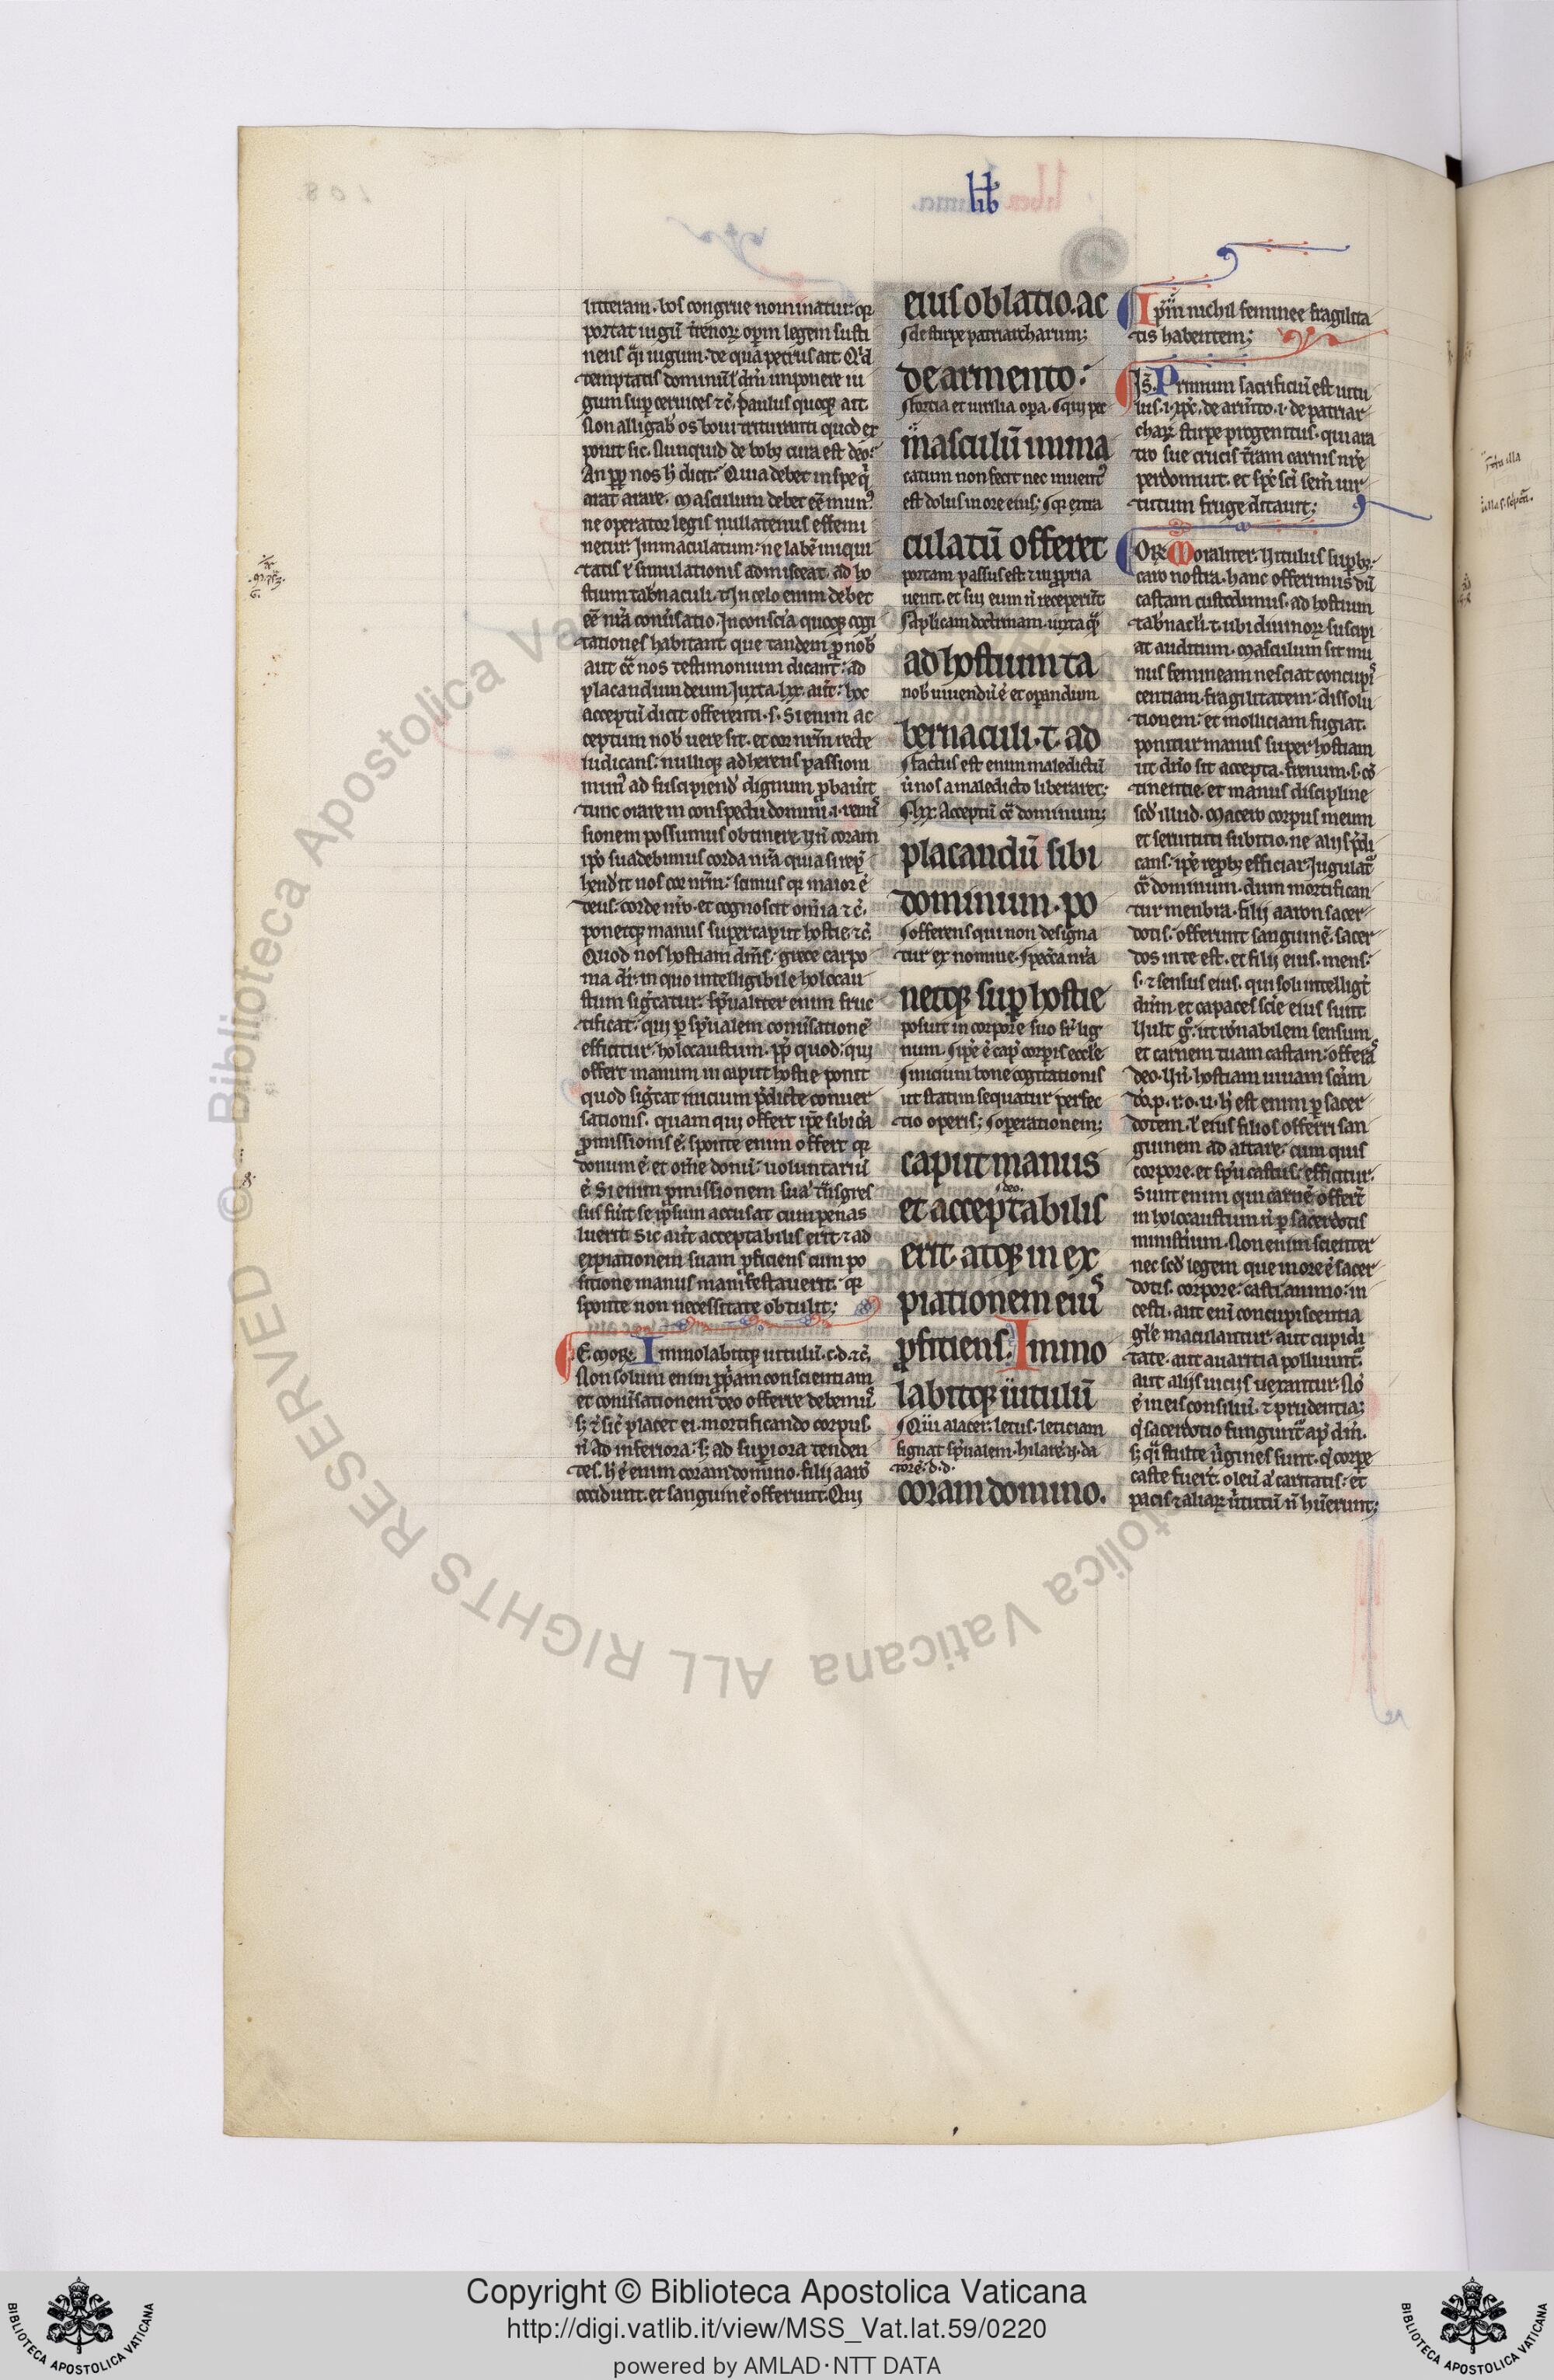 lib'
litteram. bos congrue nominatur. qr
portat iugū t̄renoꝝ opm legem susti
nens q̄i iugum. de qua petrus ait Q'd
temptatis dominū l' dīm imponere iu
gum sup ceruices ⁊c̄. Paulus quoqꝫ ait.
Non alligab' os boui trituranti quod ex
ponit sic. Nunquid de bobꝫ cura est deo.
An pp nos h' dicit. Quia debet in spe q'
arat arare. Masculum debet eē mun'
ne operator legis nullatenus effemi
netur. Immaculatum: ne labē iniqui
tatis l' simulationis admisceat. ad ho
stium tab'naculi. t. In celo enim debet
eē nr̄a conūsatio. In consc̄ia quoqꝫ cogi
tationes habitant que tandem p nob'
aut c̄ nos testimonium dicant: ad
placandum deum. Juxta. lxx. aūt: hoc
acceptū dicit offerenti. s. Si enim ac
ceptum nob' uere sit. et cor nr̄m recte
iudicans. nulliqꝫ adherens passioni
mun' ad suscipiend' dignum pbauit
tunc orare in conspectu domini. i. remis
sionem possumus obtinere. Vn̄ coram
ipo suadebimus corda nr̄a quia si rep
hendit nos cor nr̄m: scimus qr maior ē
deus. corde nr̄o. et cognoscit omīa ⁊c̄.
ponetqꝫ manus super caput hostie. ⁊c̄.
Quod nos hostiam dīms: grece carpo
ma dr̄. in quo intelligibile holocau
stum sig'catur: sp'ualiter enim fruc
tificat: qui p sp'ualem conūsationē
efficitur holocaustum. pp quod: qui
offert manum in caput hostie ponit
quod sig'cat inicium p'dicte conuer
sationis. quam qui offert ipe sibi cā
pmissionis ē. sponte enim offert qr
donum ē. et om̄e donū: uoluntariū
ē. Si enim pmissionem suā t̄nsgres
sus fūit se ipsum accusat cum penas
luerit. Sic aūt acceptabilis erit ⁊ ad
expiationem suam pficiens cum po
sitione manus manifestauerit: qr
sponte non necessitate obtulit:
E. MORꝫ. Immolabitqꝫ uitulū. c. d. ⁊c̄.
Non solum enim ppam conscientiam
et conūsationem deo offerre debemus
sꝫ ⁊ sic' placet ei. mortificando corpus.
n̄ ad inferiora: sꝫ ad superiora tenden
tes. h' ē enim coram domino. filii aarō
occidunt. et sanguinē offerunt. Qui
eius oblatio. ac
de stirpe patriarcharum;
de armento:
fortia et uirilia opa. qui pec
masculū imma
catum non fecit nec inuent'
est dolus in ore eius; qr extra
culatū offeret
portam passus est ⁊ in ppria
uenit. et sui eum n̄ receperūt
aplicam doctrinam. iuxta qā
ad hostium ta
nob' uiuendū ē et operandum.
bernaculi. t. ad
factus est enim maledictū
ū nos a maledicto liberaret;
lxx. Acceptū c̄ dominum;
placandū sibi
dominum. po
offerens qui non designa
tur ex nomine. peccata nr̄a
netqꝫ sup hostie
posuit in corpore suo sr̄ lig
num. ipe ē cap' corpis eccl'e
inicium bone cogitationis
ut statim sequatur perfec
tio operis; operationem;
caput manus
deo.
et acceptabilis
erit. atqꝫ in ex
piationem eius
pficiens. Immo
labitqꝫ uitulū
Qui alacer: letus. leticiam
signat sp'ualem. hilarē. n. da
torē. d. d.
coram domino.
Ip̄m nichil feminee fragilita
tis habentem;
IS. Primum sacrificiū est uitu
lus. i. xp̄c. de arm̄to. i. de patriar
chaꝝ stirpe progenitus. qui ara
tro sue crucis t̄ram carnis nr̄e
perdomuit. et sp̄c sc̄i sem̄ uir
tutum fruge ditauit;
ORꝫ. Moraliter. Vitulus supbꝫ.
caro nostra. hanc offerimus dū
castam custodimus. ad hostium
tab'nacl'i. t. ubi diuinoꝝ suscipi
at auditum. Masculum sit mu
nus femineam nesciat concupis
centiam. fragilitatem: dissolu
tionem: et molliciam fugiat.
ponitur manus super hostiam
ut dn̄o sit accepta. frenum. s. cō
tinentie. et manus discipline
scd' illud. Macero corpus meum
et seruituti subicio. ne aliis p̄di
cans: ipe repbꝫ efficiar. Jugulat'
c̄ dominum. dum mortifican
tur menbra. filii aaron sacer
dotis. offerunt sanguinē. sacer
dos in te est. et filii eius. mens.
s. ⁊ sensus eius. qui soli intelligūt
dūm. et capaces scīe eius sunt
Uult g°. ut rōnabilem sensum
et carnem tuam castam: offeras
deo. Vn̄. hostiam uiuam scām
dō. p. r. o. u. h' est enim p sacer
dotem. l' eius filios offerri san
guinem ad altare. cum quis
corpore. et sp̄u castus: efficitur.
Sunt enim qui carnē offerūt
in holocaustum n̄ p sacerdotis
ministīum. Non enim scienter
nec scd' legem que in ore ē sacer
dotis. corpore: casti. animo: in
cesti. aut enī concupiscentia
gl'e maculantur. aut cupidi
tate. aut auaritia polluunt'.
aut aliis uiciis uexantur. Nō
ē in eis consiliū. ⁊ prudentia;
q' sacerdotio fungunt' ap' dm̄.
sꝫ q̄i stulte ūgines sunt. q' corpe
caste fuerūt. oleū ā caritatis. et
pacis ⁊ aliaꝝ ūtutū n̄ hūerunt;
Copyright © Biblioteca Apostolica Vaticana
http://digi.vatlib.it/view/MSS_Vat.lat.59/0220
powered by AMLAD·NTT DATA
BIBLIOTECA APOSTOLICA VATICANA
BIBLIOTECA APOSTOLICA VATICANA
© Biblioteca Apostolica Vaticana ALL RIGHTS RESERVED